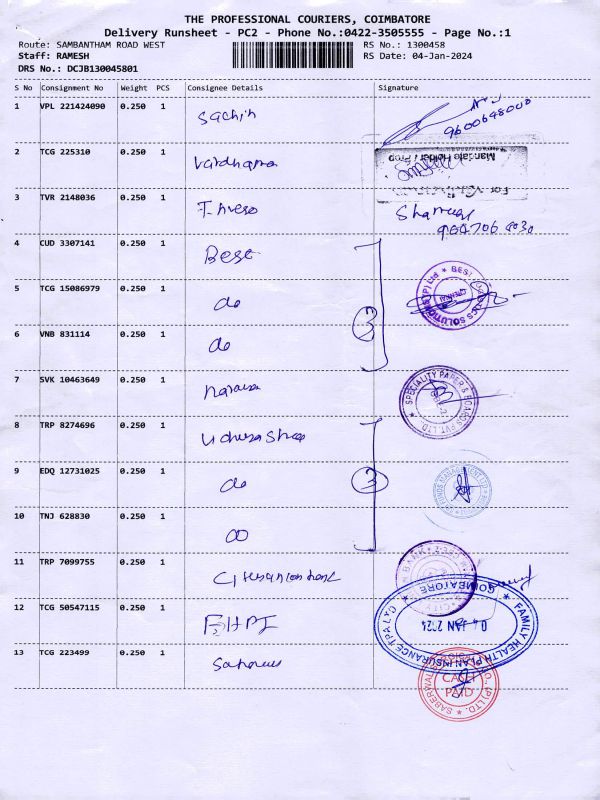 THE PROFESSIONAL COURIERS, COIMBATORE
Delivery Runsheet - PC2 - Phone No.:0422-3505555 - Page No.:1
Route: SAMBANTHAM ROAD WEST RS No.: 1300458
Staff: RAMESH RS Date: 04-Jan-2024
DRS No.: DCJB130045801
S No Consignment No Weight PCS Consignee Details Signature
1 VPL 221424090 0.250 1 Sachin
9600648000
2 TCG 225310 0.250 1 Vardhaman
Mandate Holder / Prop
For
3 TVR 2148036 0.250 1
4 CUD 3307141 0.250 1 Best
5 TCG 15086979 0.250 1 do
3
6 VNB 831114 0.250 1 do
7 SVK 10463649 0.250 1
SPECIALITY PAPER & BOARDS PVT. LTD.
8 TRP 8274696 0.250 1
9 EDQ 12731025 0.250 1 do
3
10 TNJ 628830 0.250 1 do
11 TRP 7099755 0.250 1
12 TCG 50547115 0.250 1 FHPI
FAMILY HEALTH PLAN INSURANCE TPA LTD
COIMBATORE
04 JAN 2024
13 TCG 223499 0.250 1
CASH
PAID